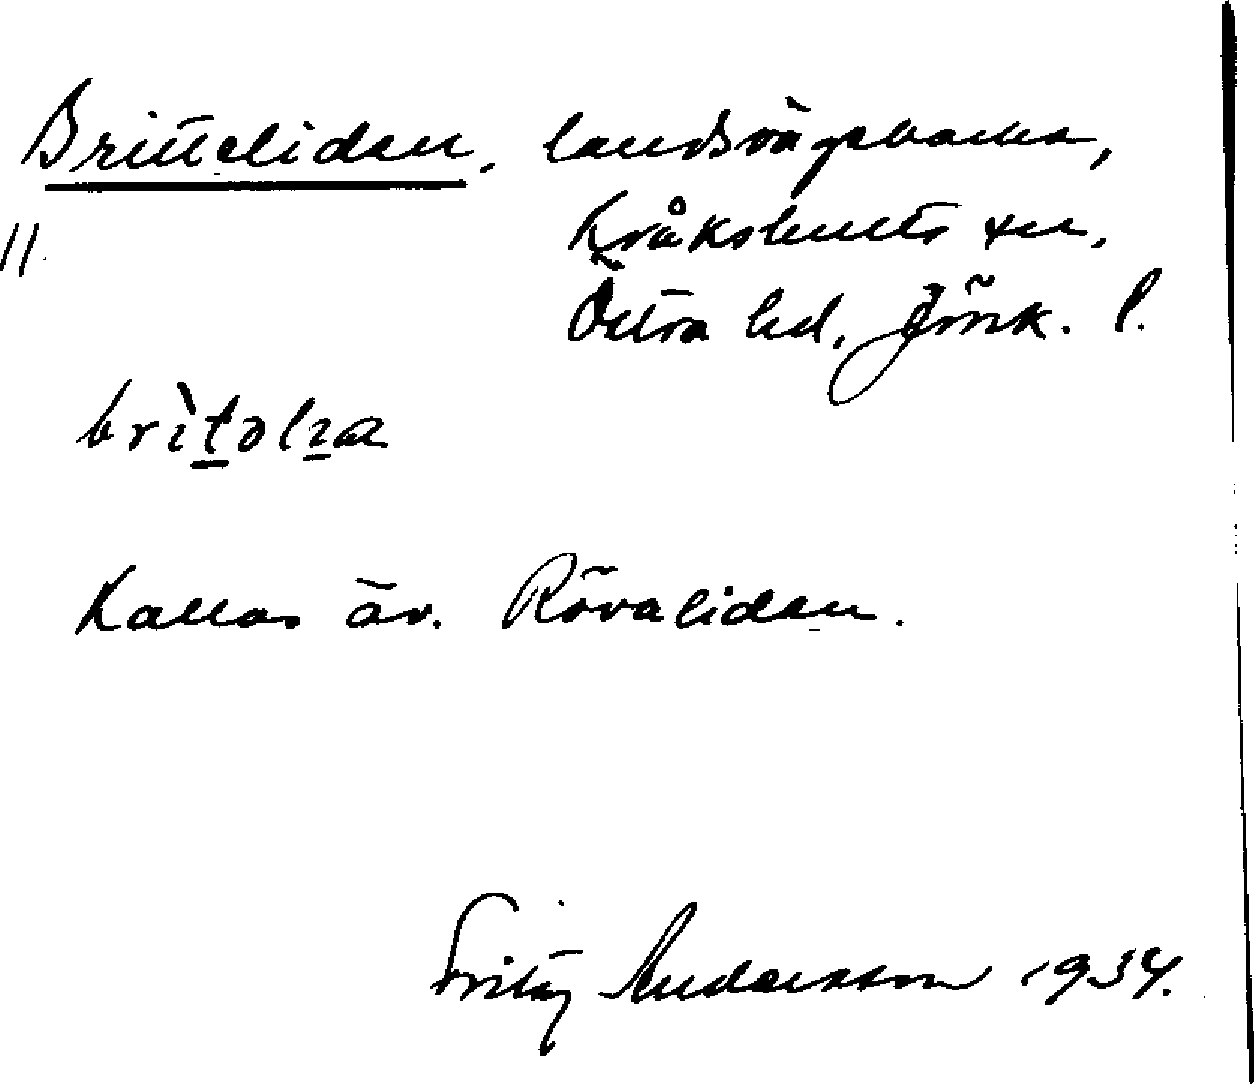 Britteliden, landsvägsbacke,
Kråkshults sn.
11.
Östra hd, Jönk. l.
Kallas äv. Rövaliden.
Fritz Andersson 1934.